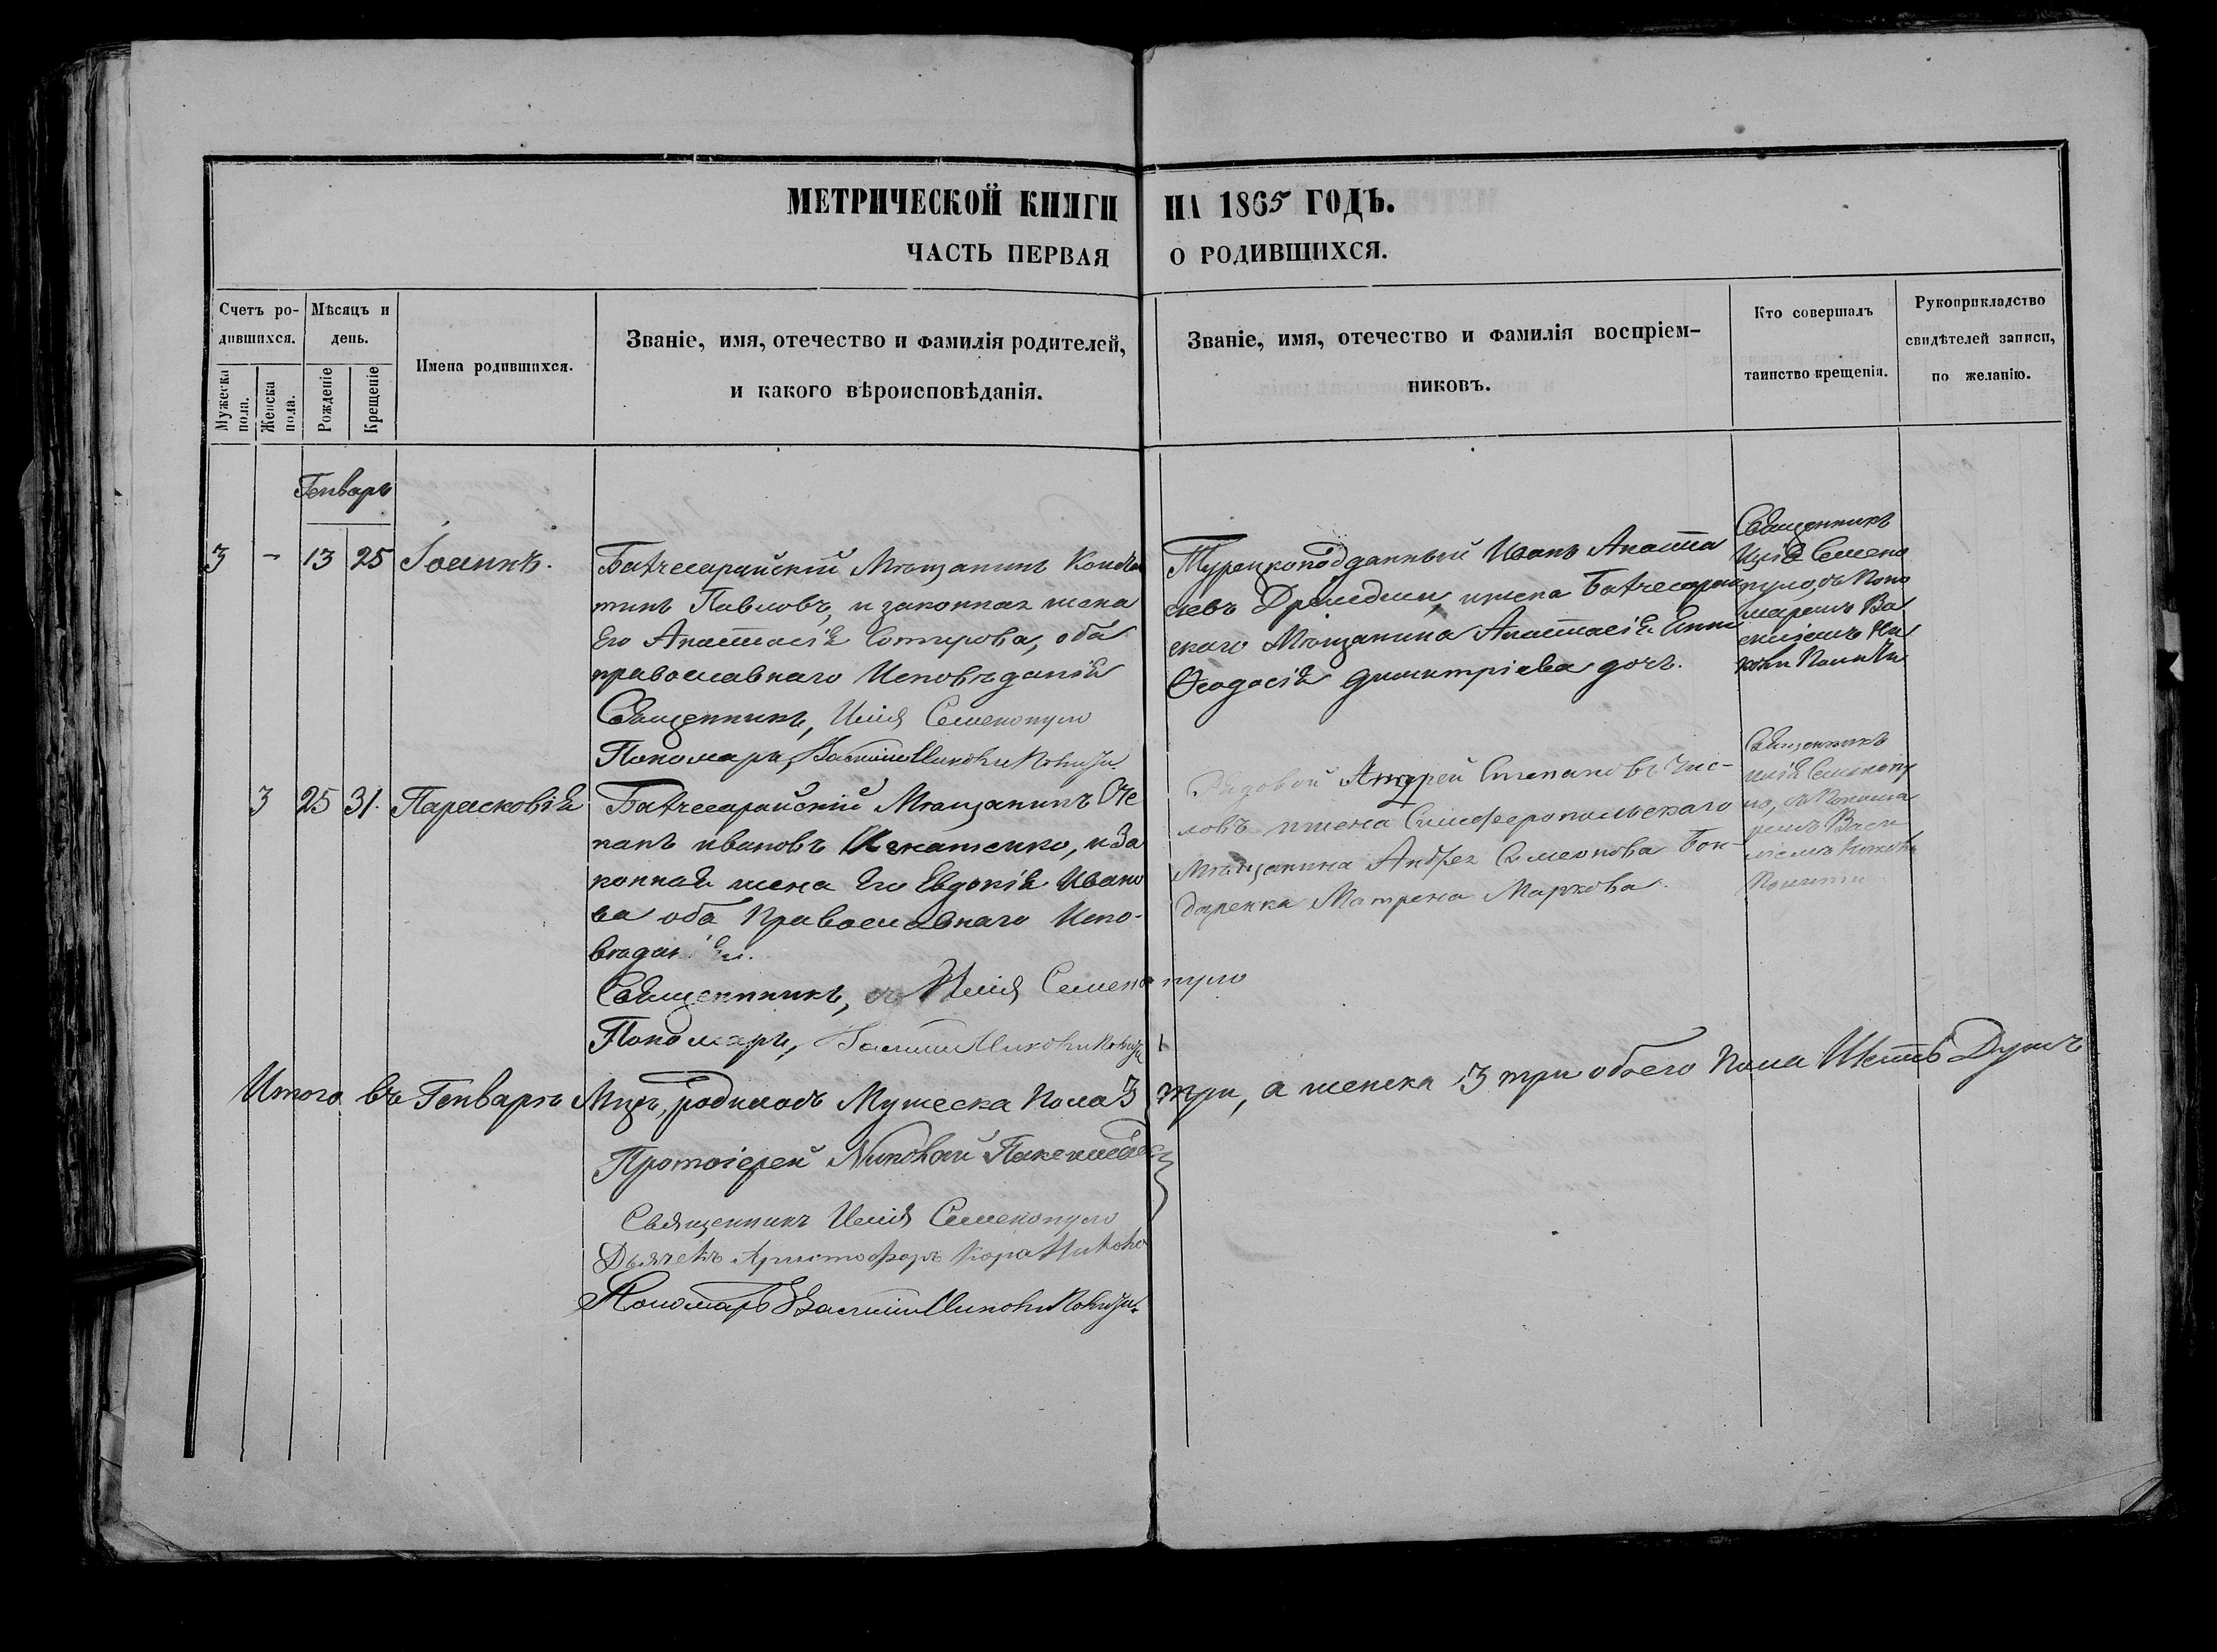 МЕТРИЧЕСКОЙ КНИГИ НА 1865 ГОДЪ.
ЧАСТЬ ПЕРВАЯ О РОДИВШИХСЯ.
Счетъ ро-
дившихся.
Мужеска пола.
Женска пола.
Мѣсяцъ и
день.
Рожденіе
Крещеніе
Имена родившихся.
Званіе, имя, отечество и фамилія родителей,
и какого вѣроисповѣданія.
Званіе, имя, отечество и фамилія воспріем-
никовъ.
Кто совершалъ
таинство крещенія.
Рукоприкладство
свидѣтелей записи,
по желанію.
Генварь
3 - 13 25 Іоаннъ.
Бахчесарайскій Мѣщанинъ Констан
тинъ Павловъ, и законная жена
Его Анастасія Сотирова, оба
православнаго Исповѣданія
Священникъ, Илія Семенопуло
Пономарь, Василий
Турецкоподданный Иванъ Анаста
сіевъ и жена Бахчесарай
скаго Мѣщанина Анастасія
Ѳеодосія Димитріева дочь.
Священникъ
Илія Семено
пуло, съ Поно
маремъ Ва
силіемъ
3 25 31. Параскевія
Бахчесарайскій Мѣщанинъ Сте
панъ Ивановъ Игнатенко, и За
конная жена Его Евдокія Ивано
ва оба Православнаго Испо-
вѣданія.
Священникъ, Илія Семенопуло
Пономарь, Василий
Рядовой Андрей Степановъ
ловъ и жена Симферопольскаго
Мѣщанина Андрея Симеонова Бон-
даренка Матрена Маркова.
Священникъ
Илія Семенопу
ло, съ Понома
ремъ Васи
ліемъ
Итого въ Генварѣ Мцѣ, родилось Мужеска Пола 3 три, а женска 3 три обоего Пола Шесть Душъ
Протоіерей Николай
Священникъ Илія Семенопуло
Дьячекъ Христофоръ
Пономарь Василий